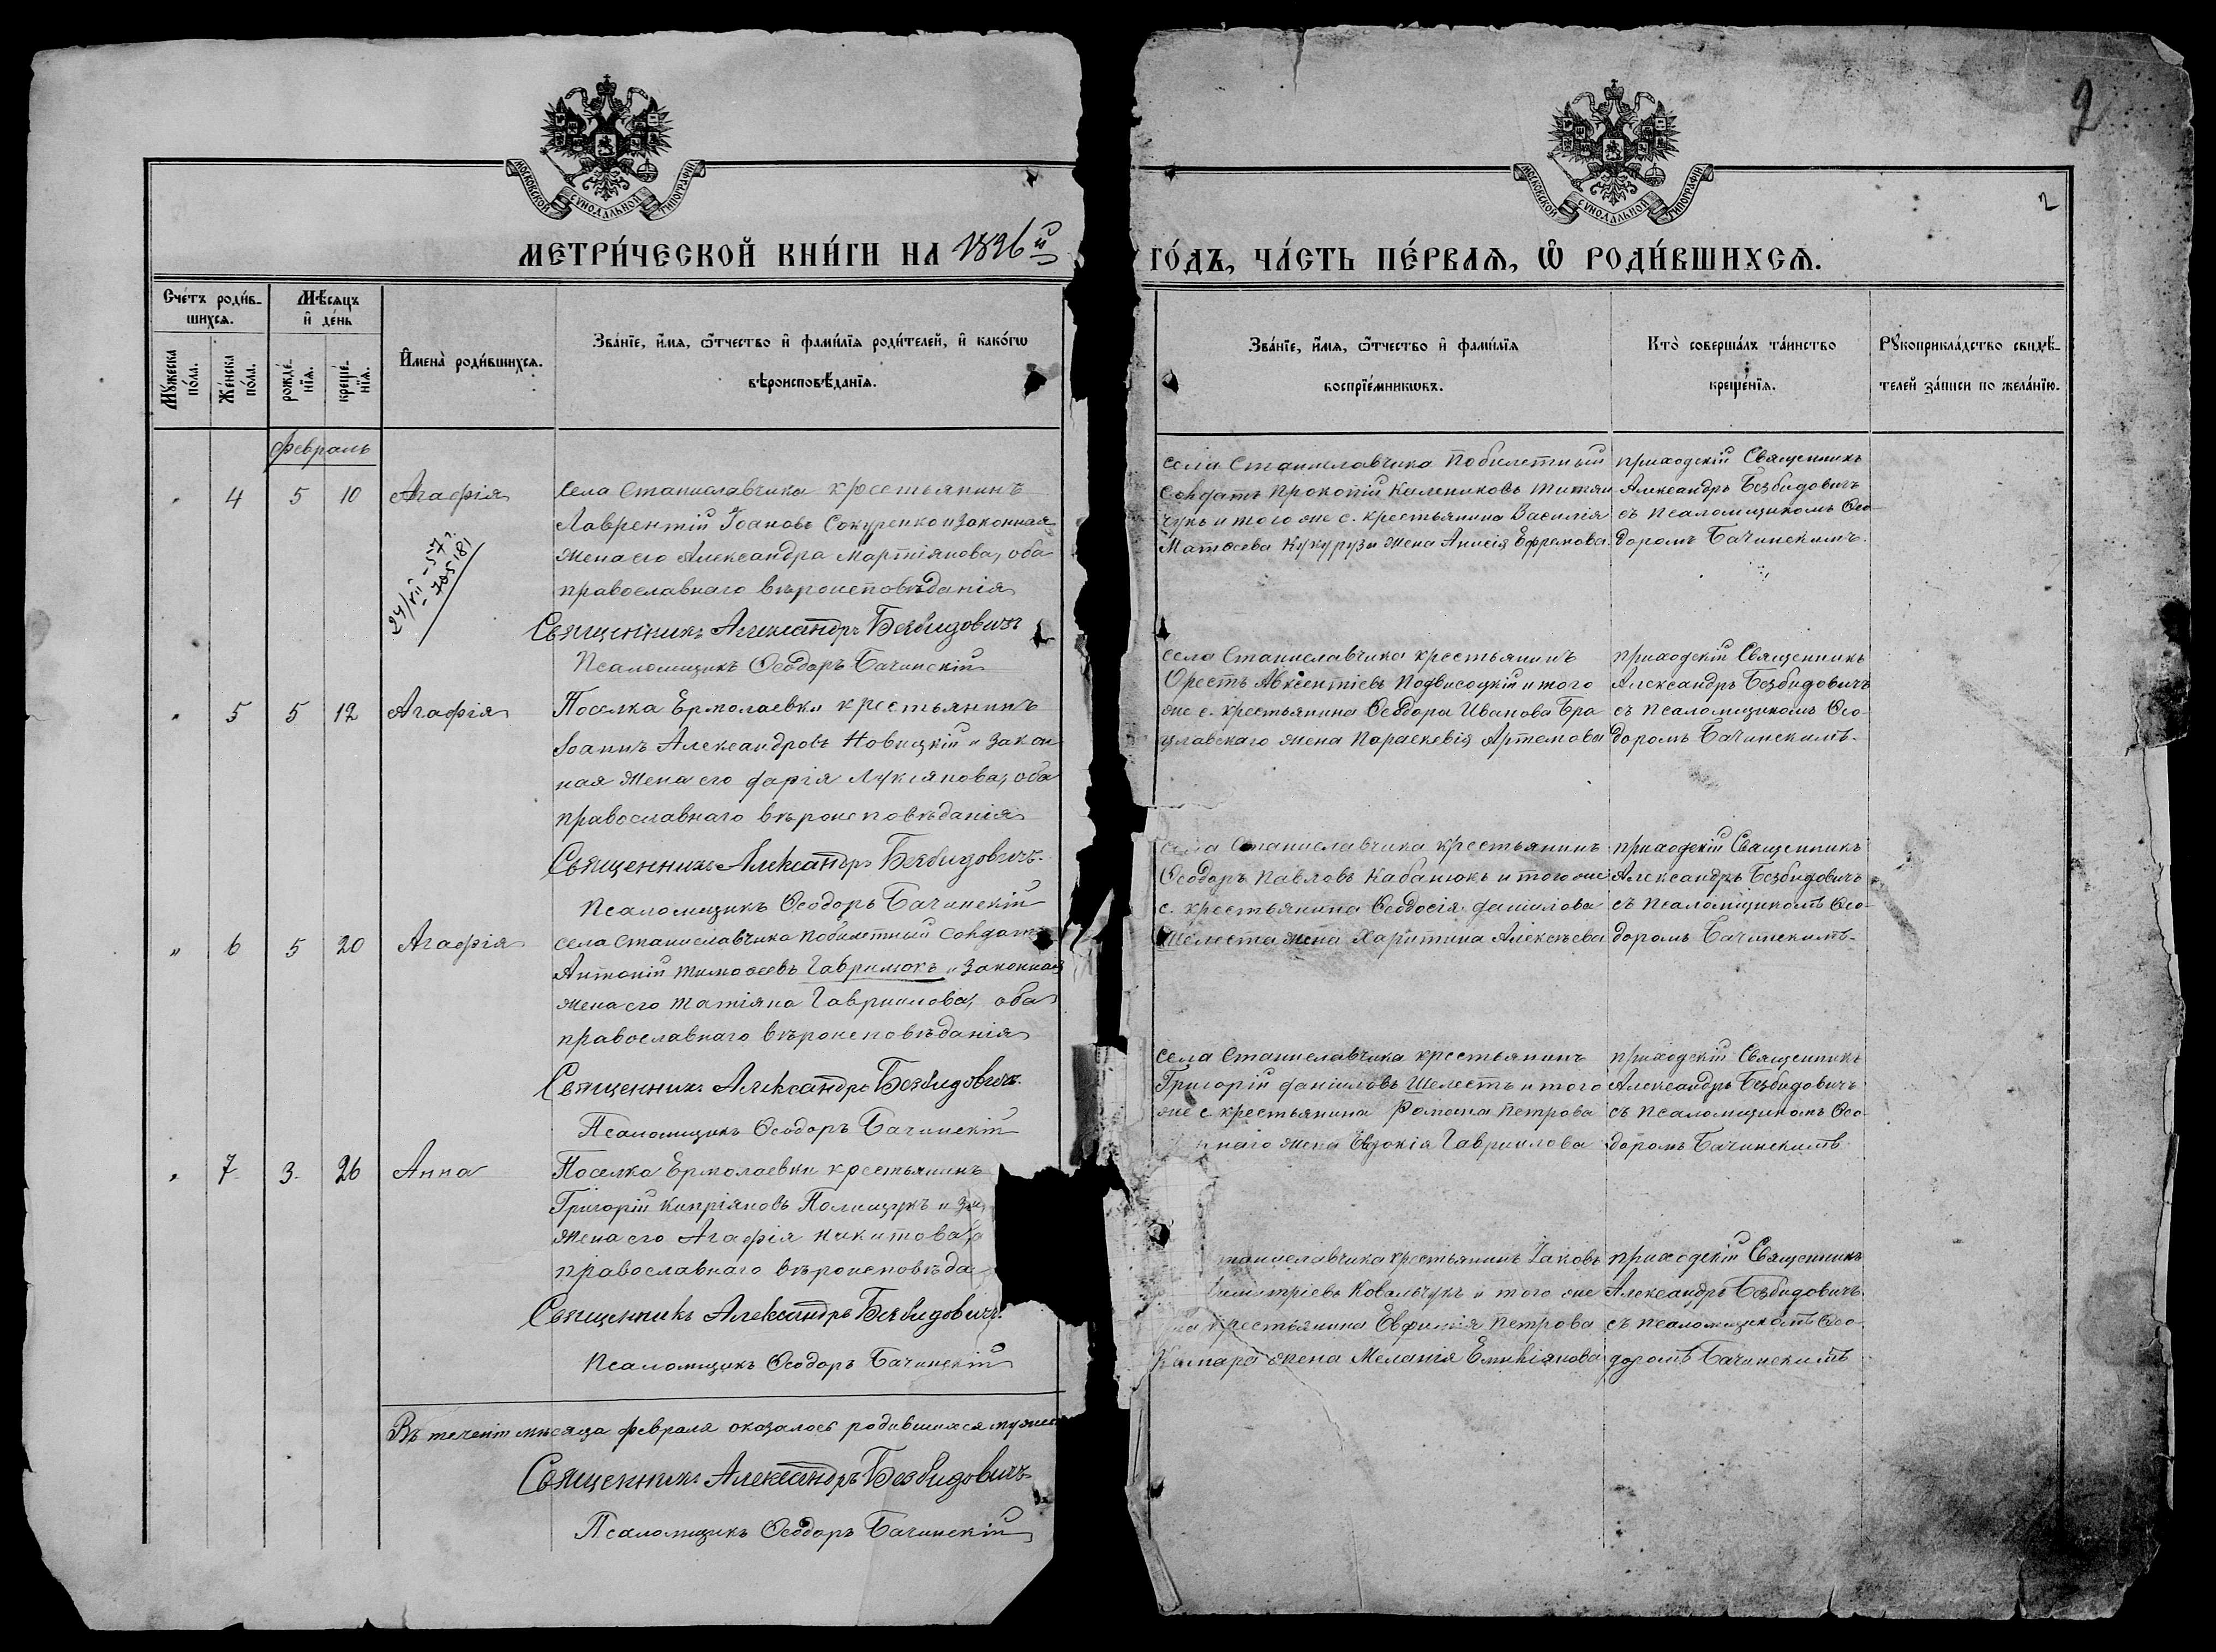 МОСКОВСКОЙ СѴНОДАЛЬНОЙ ТИПОГРАФІИ
МЕТРИ́ЧЕСКОЙ КНИ́ГИ НА 1896 й
Сче́тъ роди́в-
шихсѧ.
Мѣ́сѧцъ
и҆ де́нь
Мꙋ́жеска
по́ла.
Же́нска
по́ла.
рожде́-
нїѧ.
креще́-
нїѧ.
И҆мена̀ роди́вшихсѧ.
Зва́нїе, и҆́мѧ, ѻ҆́тчество и҆ фами́лїѧ роди́телей, и҆ како́гѡ
вѣроисповѣ́данїѧ.
Февраль
4 5 10 Агафія
Села Станиславчика крестьянинъ
Лаврентій Іоановъ Сокуренко и законная
жена его Александра Мартіянова, оба
православнаго вѣроисповѣданія
24/VII - 57 г.
Священникъ Александръ Безбидовичъ
Псаломщикъ Ѳеодоръ Бачинскій
5 5 12 Агафія
Поселка Ермолаевки крестьянинъ
Іоаннъ Александровъ Новицкій и закон
ная жена его Дарія Лукіянова, оба
православнаго вѣроисповѣданія
Священникъ Александръ Безбидовичъ.
Псаломщикъ Ѳеодоръ Бачинскій
" 6 5 20 Агафія
Села Станиславчика побилетный солдатъ
Антоній Тимоѳеевъ Гаврилюкъ и законная
жена его Татіяна Гавриилова, оба
православнаго вѣроисповѣданія
Священникъ Александръ Безбидовичъ.
Псаломщикъ Ѳеодоръ Бачинскій
7 3. 26 Анна
Поселка Ермолаевки крестьянинъ
Григорій Кипріяновъ Полищукъ и за
жена его Агафія Никитова
православнаго вѣроисповѣда
Священникъ Александръ Безбидовичъ.
Псаломщикъ Ѳеодоръ Бачинскій
Въ теченіи мѣсяца февраля оказалось родившихся мужес
Священникъ Александръ Безбидовичъ
Псаломщикъ Ѳеодоръ Бачинскій
2
2
МОСКОВСКОЙ СѴНОДАЛЬНОЙ ТИПОГРАФІИ
ГО́ДЪ, ЧА́СТЬ ПЕ́РВАѦ, Ѡ҆ РОДИ́ВШИХСѦ.
Зва́нїе, и҆́мѧ, ѻ҆́тчество и҆ фами́лїѧ
воспрїе́мникѡвъ.
Кто̀ соверша́лъ та́инство
креще́нїѧ.
Рꙋкоприкла́дство свидѣ́-
телей за́писи по жела́нїю.
Села Станиславчика побилетный
Солдатъ Прокопій Калениковъ Титян
чукъ и того же с. крестьянина Василія
Матѳеева Кукурузы жена Анисія Ефремова.
Приходскій Священникъ
Александръ Безбидовичъ
съ псаломщикомъ Ѳео-
доромъ Бачинскимъ.
Села Станиславчика крестьянинъ
Орестъ Авксентіевъ Подвисоцкій и того
же с. крестьянина Ѳеодора Иванова Бра
цлавскаго жена Параскевія Артемова
Приходскій Священникъ
Александръ Безбидовичъ
съ псаломщикомъ Ѳео-
доромъ Бачинскимъ.
Села Станиславчика крестьянинъ
Ѳеодоръ Павловъ Кабанюкъ и того же
с. крестьянина Ѳеодосія Даніилова
Шелеста жена Харитина Алексѣева
Приходскій Священникъ
Александръ Безбидовичъ
съ псаломщикомъ Ѳео-
доромъ Бачинскимъ.
Села Станиславчика крестьянинъ
Григорій Даніиловъ Шелестъ и того
же с. крестьянина Романа Петрова
наго жена Евдокія Гавриилова
Приходскій Священникъ
Александръ Безбидовичъ
съ псаломщикомъ Ѳео-
доромъ Бачинскимъ
таниславчика крестьянинъ Іаковъ
имитріевъ Ковальчукъ и того же
ла крестьянина Евфимія Петрова
Комара жена Меланія Емиліянова
Приходскій Священникъ
Александръ Безбидовичъ.
съ псаломщикомъ Ѳео-
доромъ Бачинскимъ